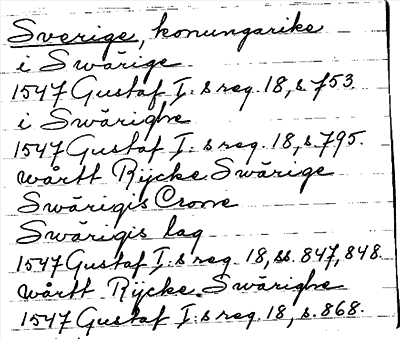 Sverige, konungarike
i Swärige
1547 Gustaf I:s reg. 18, s. 753.
i Swärighe
1547 Gustaf I:s reg. 18, s. 795.
wårtt Rijcke Swärige
Swärigis Crone
Swärigis lag
1547 Gustaf I:s reg. 18, ss. 847, 848.
wårtt Rijcke Swärighe
1547 Gustaf I:s reg. 18, s. 868.